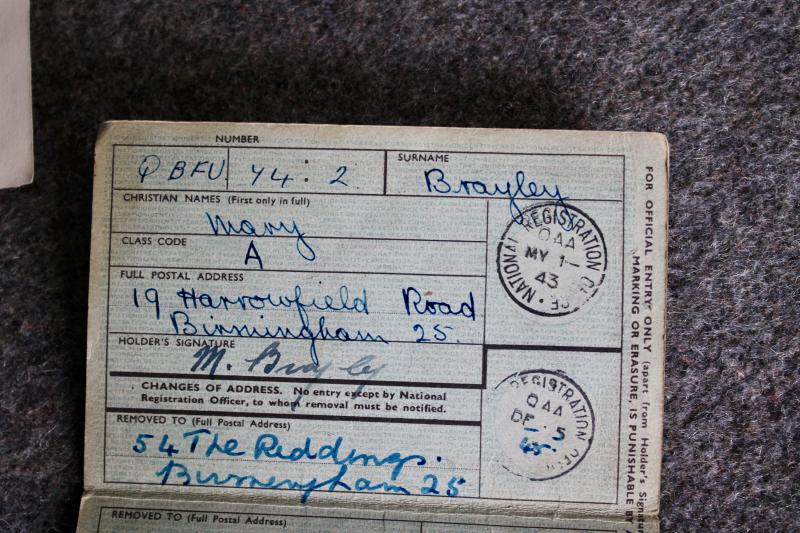 NUMBER
QBFU 44: 2
SURNAME
Brayley
CHRISTIAN NAMES (First only in full)
Mary
CLASS CODE
A
FULL POSTAL ADDRESS
19 Harrowfield Road
Birmingham 25.
HOLDER'S SIGNATURE
M. Brayley
NATIONAL REGISTRATION
QAA
MY 1-
43
CHANGES OF ADDRESS. No entry except by National
Registration Officer, to whom removal must be notified.
REMOVED TO (Full Postal Address)
54 The Reddings.
Birmingham 25
REGISTRATION
QAA
DE -5
45
REMOVED TO (Full Postal Address)
FOR OFFICIAL ENTRY ONLY (apart from Holder's
MARKING OR ERASURE, IS PUNISHABLE BY